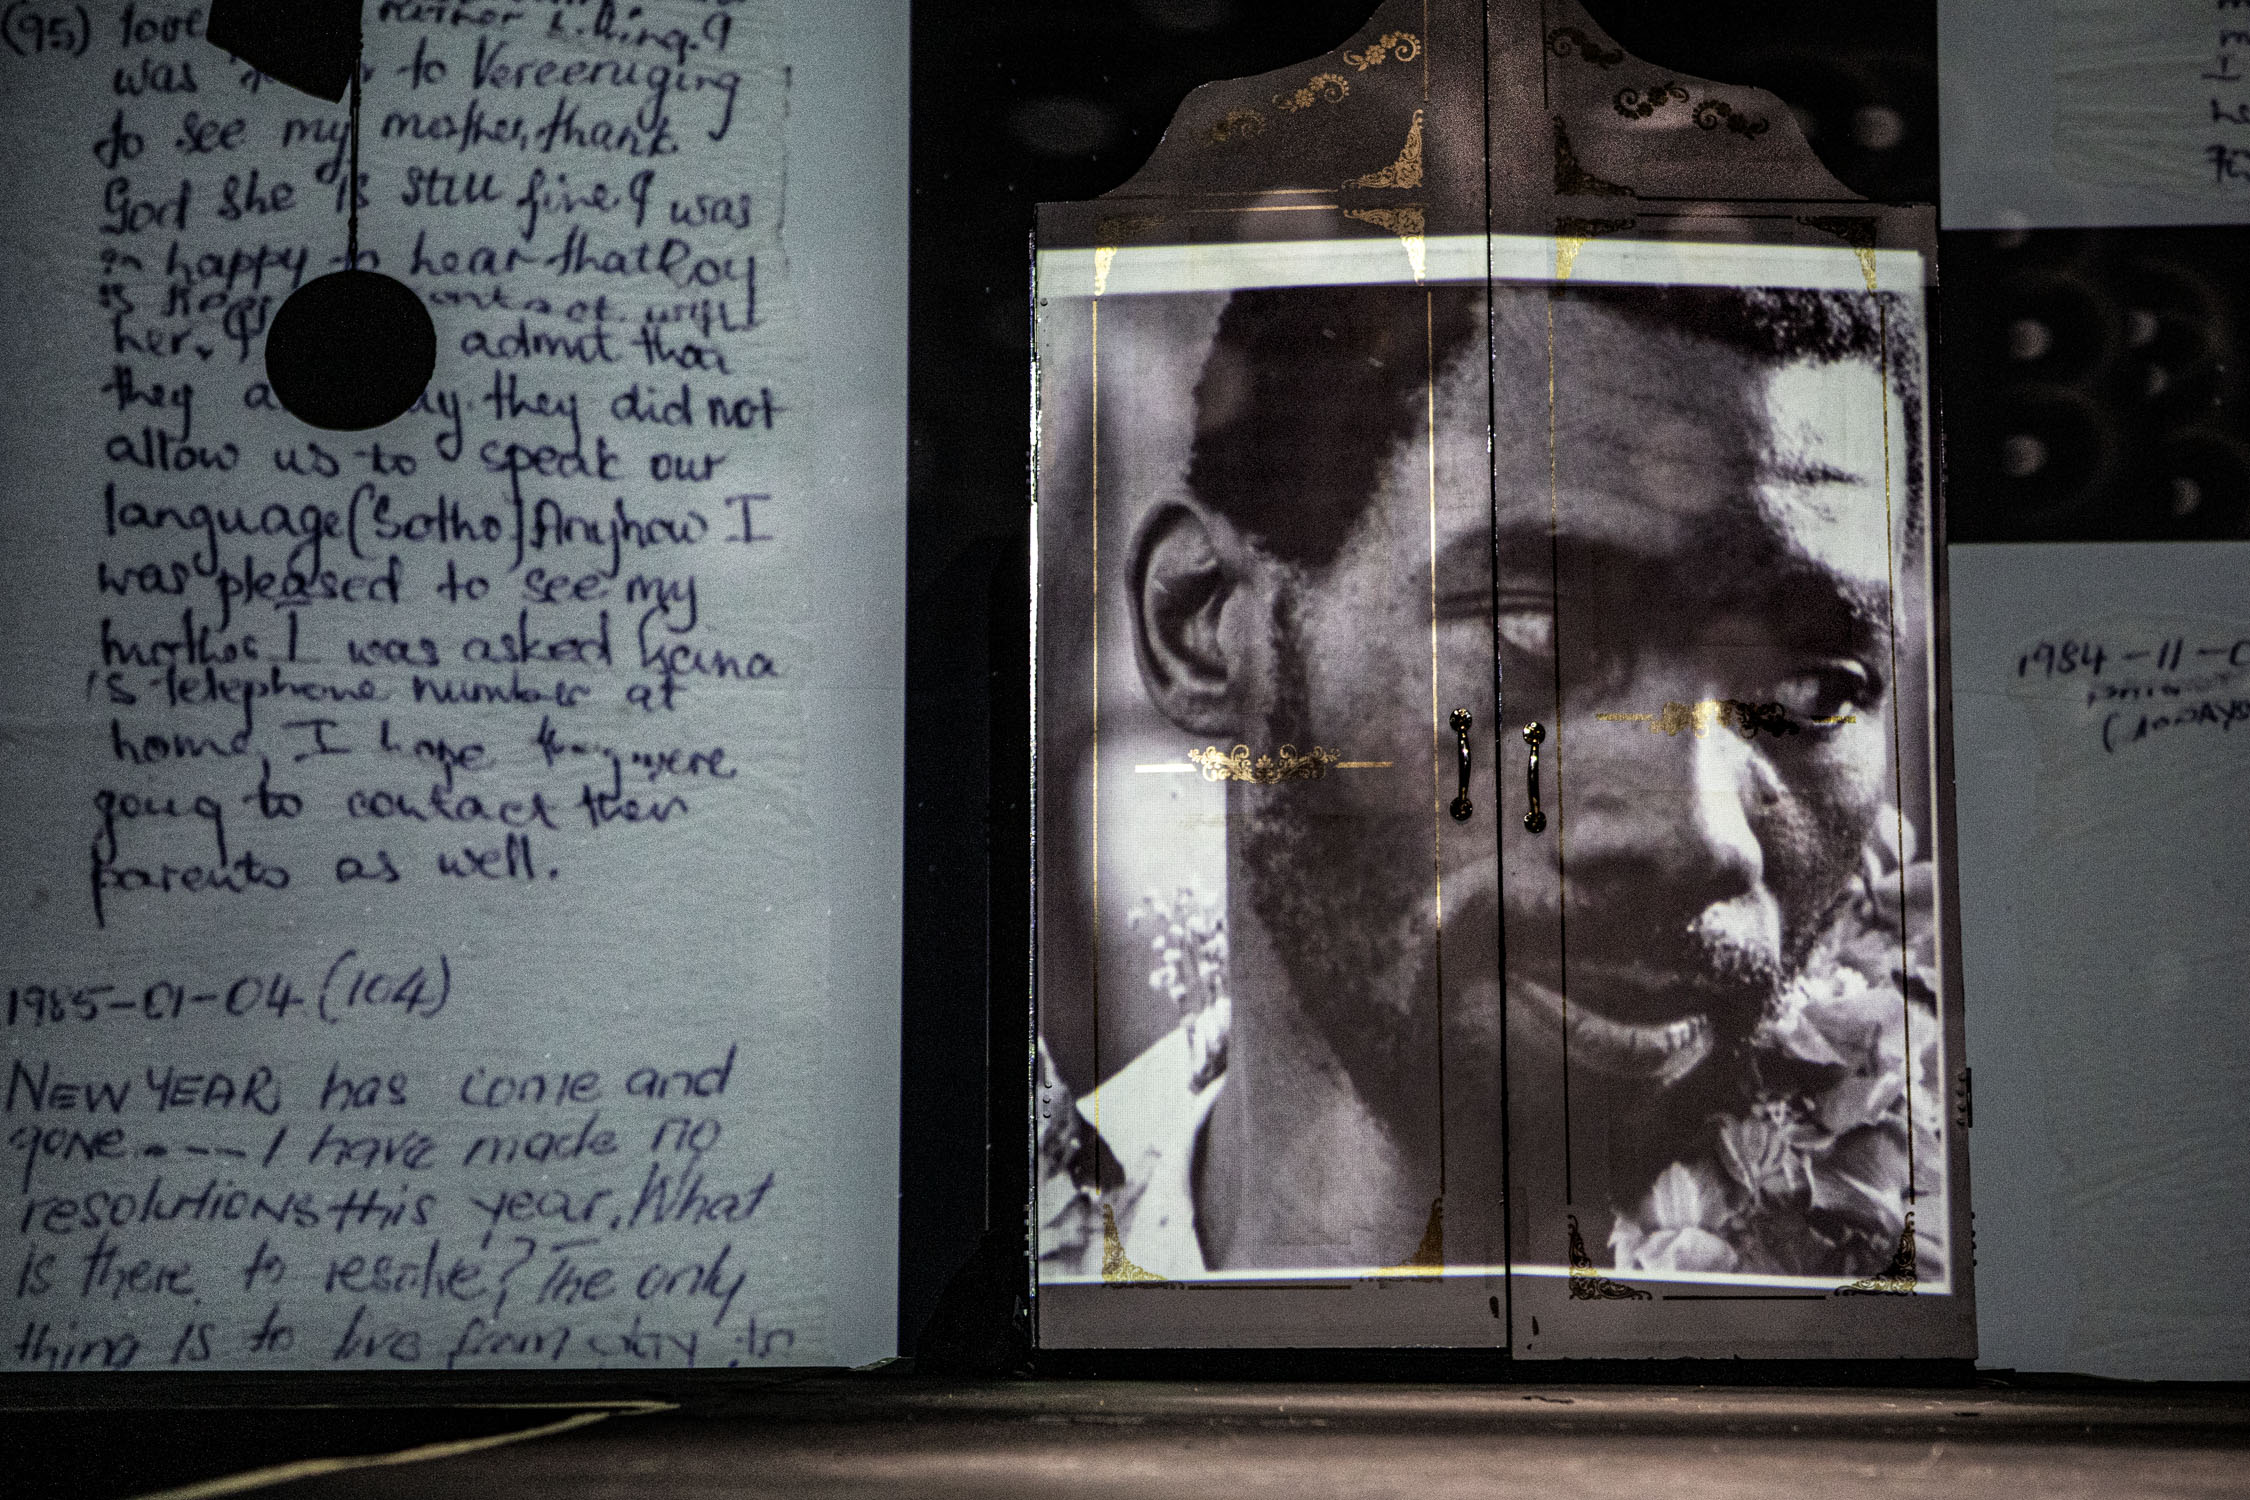 (95) love
was to Vereeniging
to see my mother, thank
God she is still fine I was
happy to hear that Roy
her. admit that
they they did not
allow us to speak our
language (Sotho) Anyhow I
was pleased to see my
mother I was asked
is telephone number at
home, I hope they were
going to contact their
parents as well.
1985-01-04 (104)
NEW YEAR has come and
gone.---- I have made no
resolutions this year. What
is there to resolve? The only
thing is to live from day to
1984-11-0